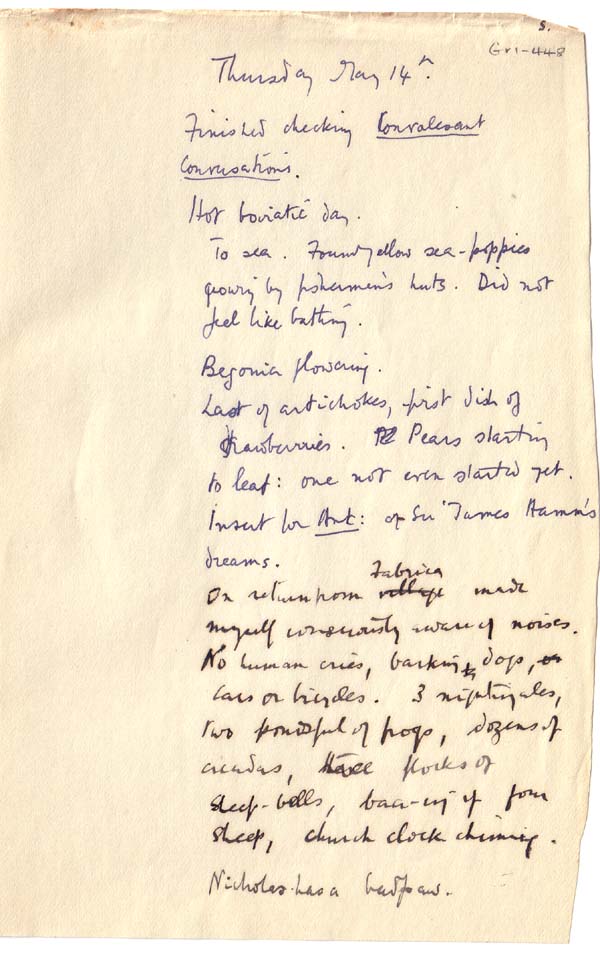 S.
Gr1-448
Thursday May 14th.
Finished checking Convalescent
Conversations.
Hot day.
To sea. Found yellow sea-poppies
growing by fishermen's huts. Did not
feel like bathing.
Begonia flowering.
Last of artichokes, first dish of
strawberries. Pears starting
to leaf: one not even started yet.
Insert for Ant: of Sir James Hamm's
dreams.
Fabrica
On return from village made
myself consciously aware of noises.
No human cries, barking dogs, or
cars or bicycles. 3 nightingales,
two pondsful of frogs, dozens of
cicadas, three flocks of
sheep-bells, baa-ing of four
sheep, church clock chiming.
Nicholas has a bad paw.